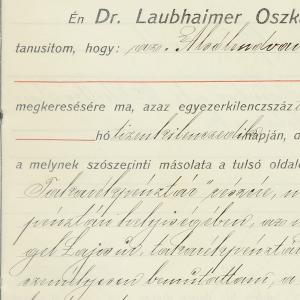 Én Dr. Laubhaimer Oszká
tanusitom, hogy: az "Alsólendvai
megkeresésére ma, azaz egyezerkilenczszáz
hó tizenkilenczedik napján, a
a melynek szószerinti másolata a tulsó oldalo
Takarékpénztár" részére, 
pénztári helyiségében, az
gel Lajos úr, takarékpénztár
személyesen bemutattam, a